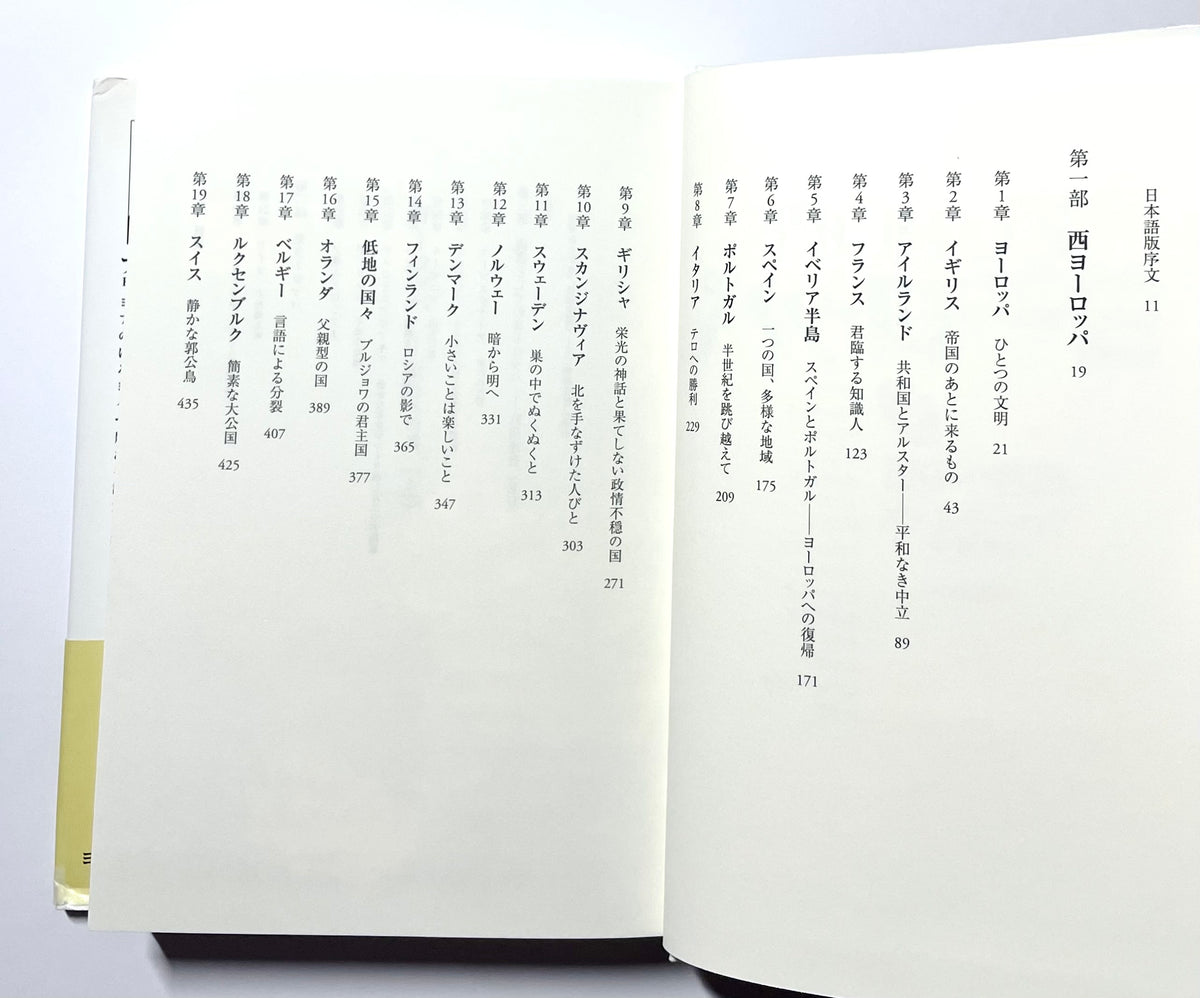 日本語版序文 11
第一部 西ヨーロッパ 19
第1章 ヨーロッパ ひとつの文明 21
第2章 イギリス 帝国のあとに来るもの 43
第3章 アイルランド 共和国とアルスター――平和なき中立 89
第4章 フランス 君臨する知識人 123
第5章 イベリア半島 スペインとポルトガル――ヨーロッパへの復帰 171
第6章 スペイン 一つの国、多様な地域 175
第7章 ポルトガル 半世紀を跳び越えて 209
第8章 イタリア テロへの勝利 229
第9章 ギリシャ 栄光の神話と果てしない政情不穏の国 271
第10章 スカンジナヴィア 北を手なずけた人びと 303
第11章 スウェーデン 巣の中でぬくぬくと 313
第12章 ノルウェー 暗から明へ 331
第13章 デンマーク 小さいことは楽しいこと 347
第14章 フィンランド ロシアの影で 365
第15章 低地の国々 ブルジョワの君主国 377
第16章 オランダ 父親型の国 389
第17章 ベルギー 言語による分裂 407
第18章 ルクセンブルク 簡素な大公国 425
第19章 スイス 静かな郭公鳥 435